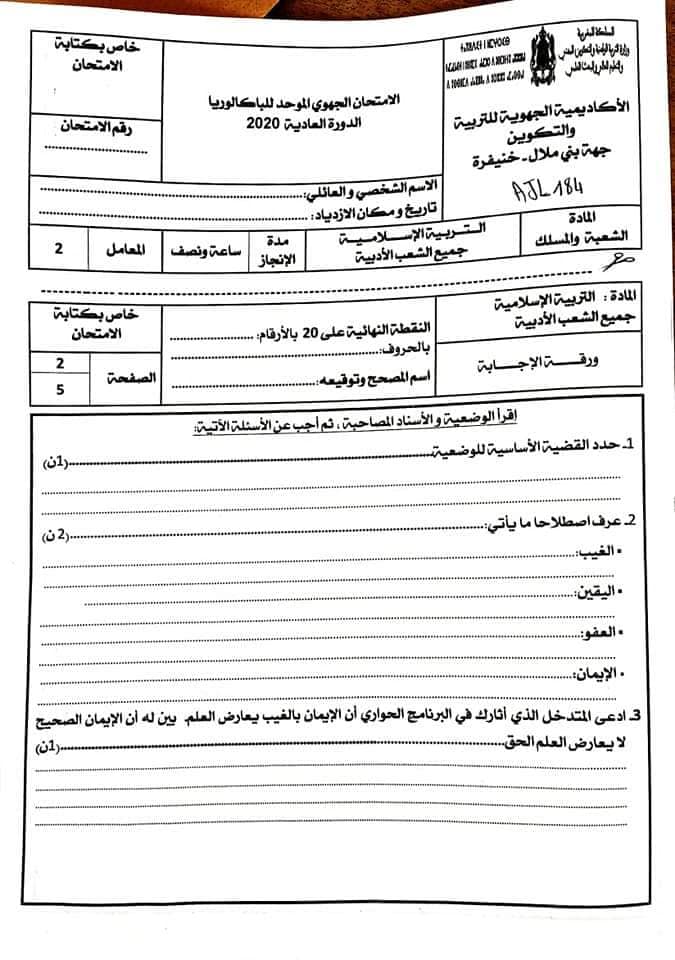 المملكة المغربية
وزارة التربية الوطنية والتكوين المهني
والتعليم العالي والبحث العلمي
الأكاديمية الجهوية للتربية
والتكوين
جهة بني ملال - خنيفرة
AJL 184
الامتحان الجهوي الموحد للباكالوريا
الدورة العادية 2020
خاص بكتابة
الامتحان
رقم الامتحان
الاسم الشخصي و العائلي:
تاريخ و مكان الازدياد:
المادة
الشعبة والمسلك
التربية الإسلامية
جميع الشعب الأدبية
مدة
الإنجاز
ساعة ونصف
المعامل
2
المادة : التربية الإسلامية
جميع الشعب الأدبية
ورقة الإجابة
النقطة النهائية على 20 بالأرقام:
بالحروف:
اسم المصحح وتوقيعه:
خاص بكتابة
الامتحان
الصفحة
2
5
إقرأ الوضعية و الأسناد المصاحبة ، ثم أجب عن الأسئلة الآتية:
1ـ حدد القضية الأساسية للوضعية (1ن)
2ـ عرف اصطلاحا ما يأتي: (2 ن)
▪ الغيب:
▪ اليقين:
▪ العفو:
▪ الإيمان:
3ـ ادعى المتدخل الذي أثارك في البرنامج الحواري أن الإيمان بالغيب يعارض العلم. بين له أن الإيمان الصحيح
لا يعارض العلم الحق (1ن)